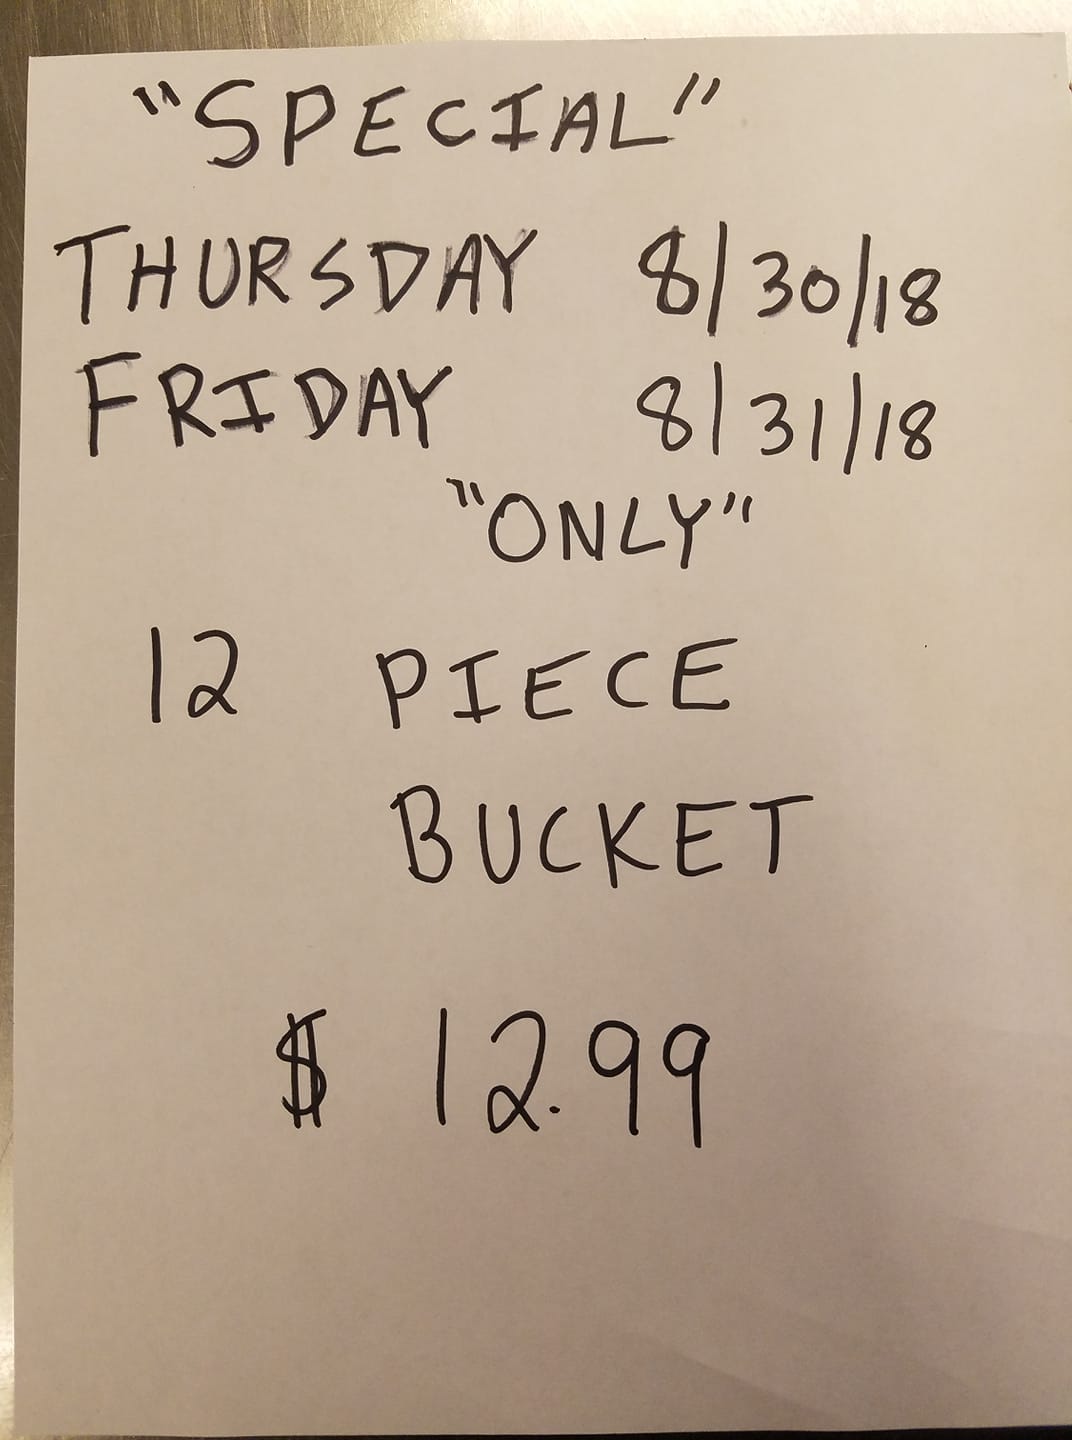 "SPECIAL"
THURSDAY 8/30/18
FRIDAY 8/31/18
"ONLY"
12 PIECE
BUCKET
$ 12.99